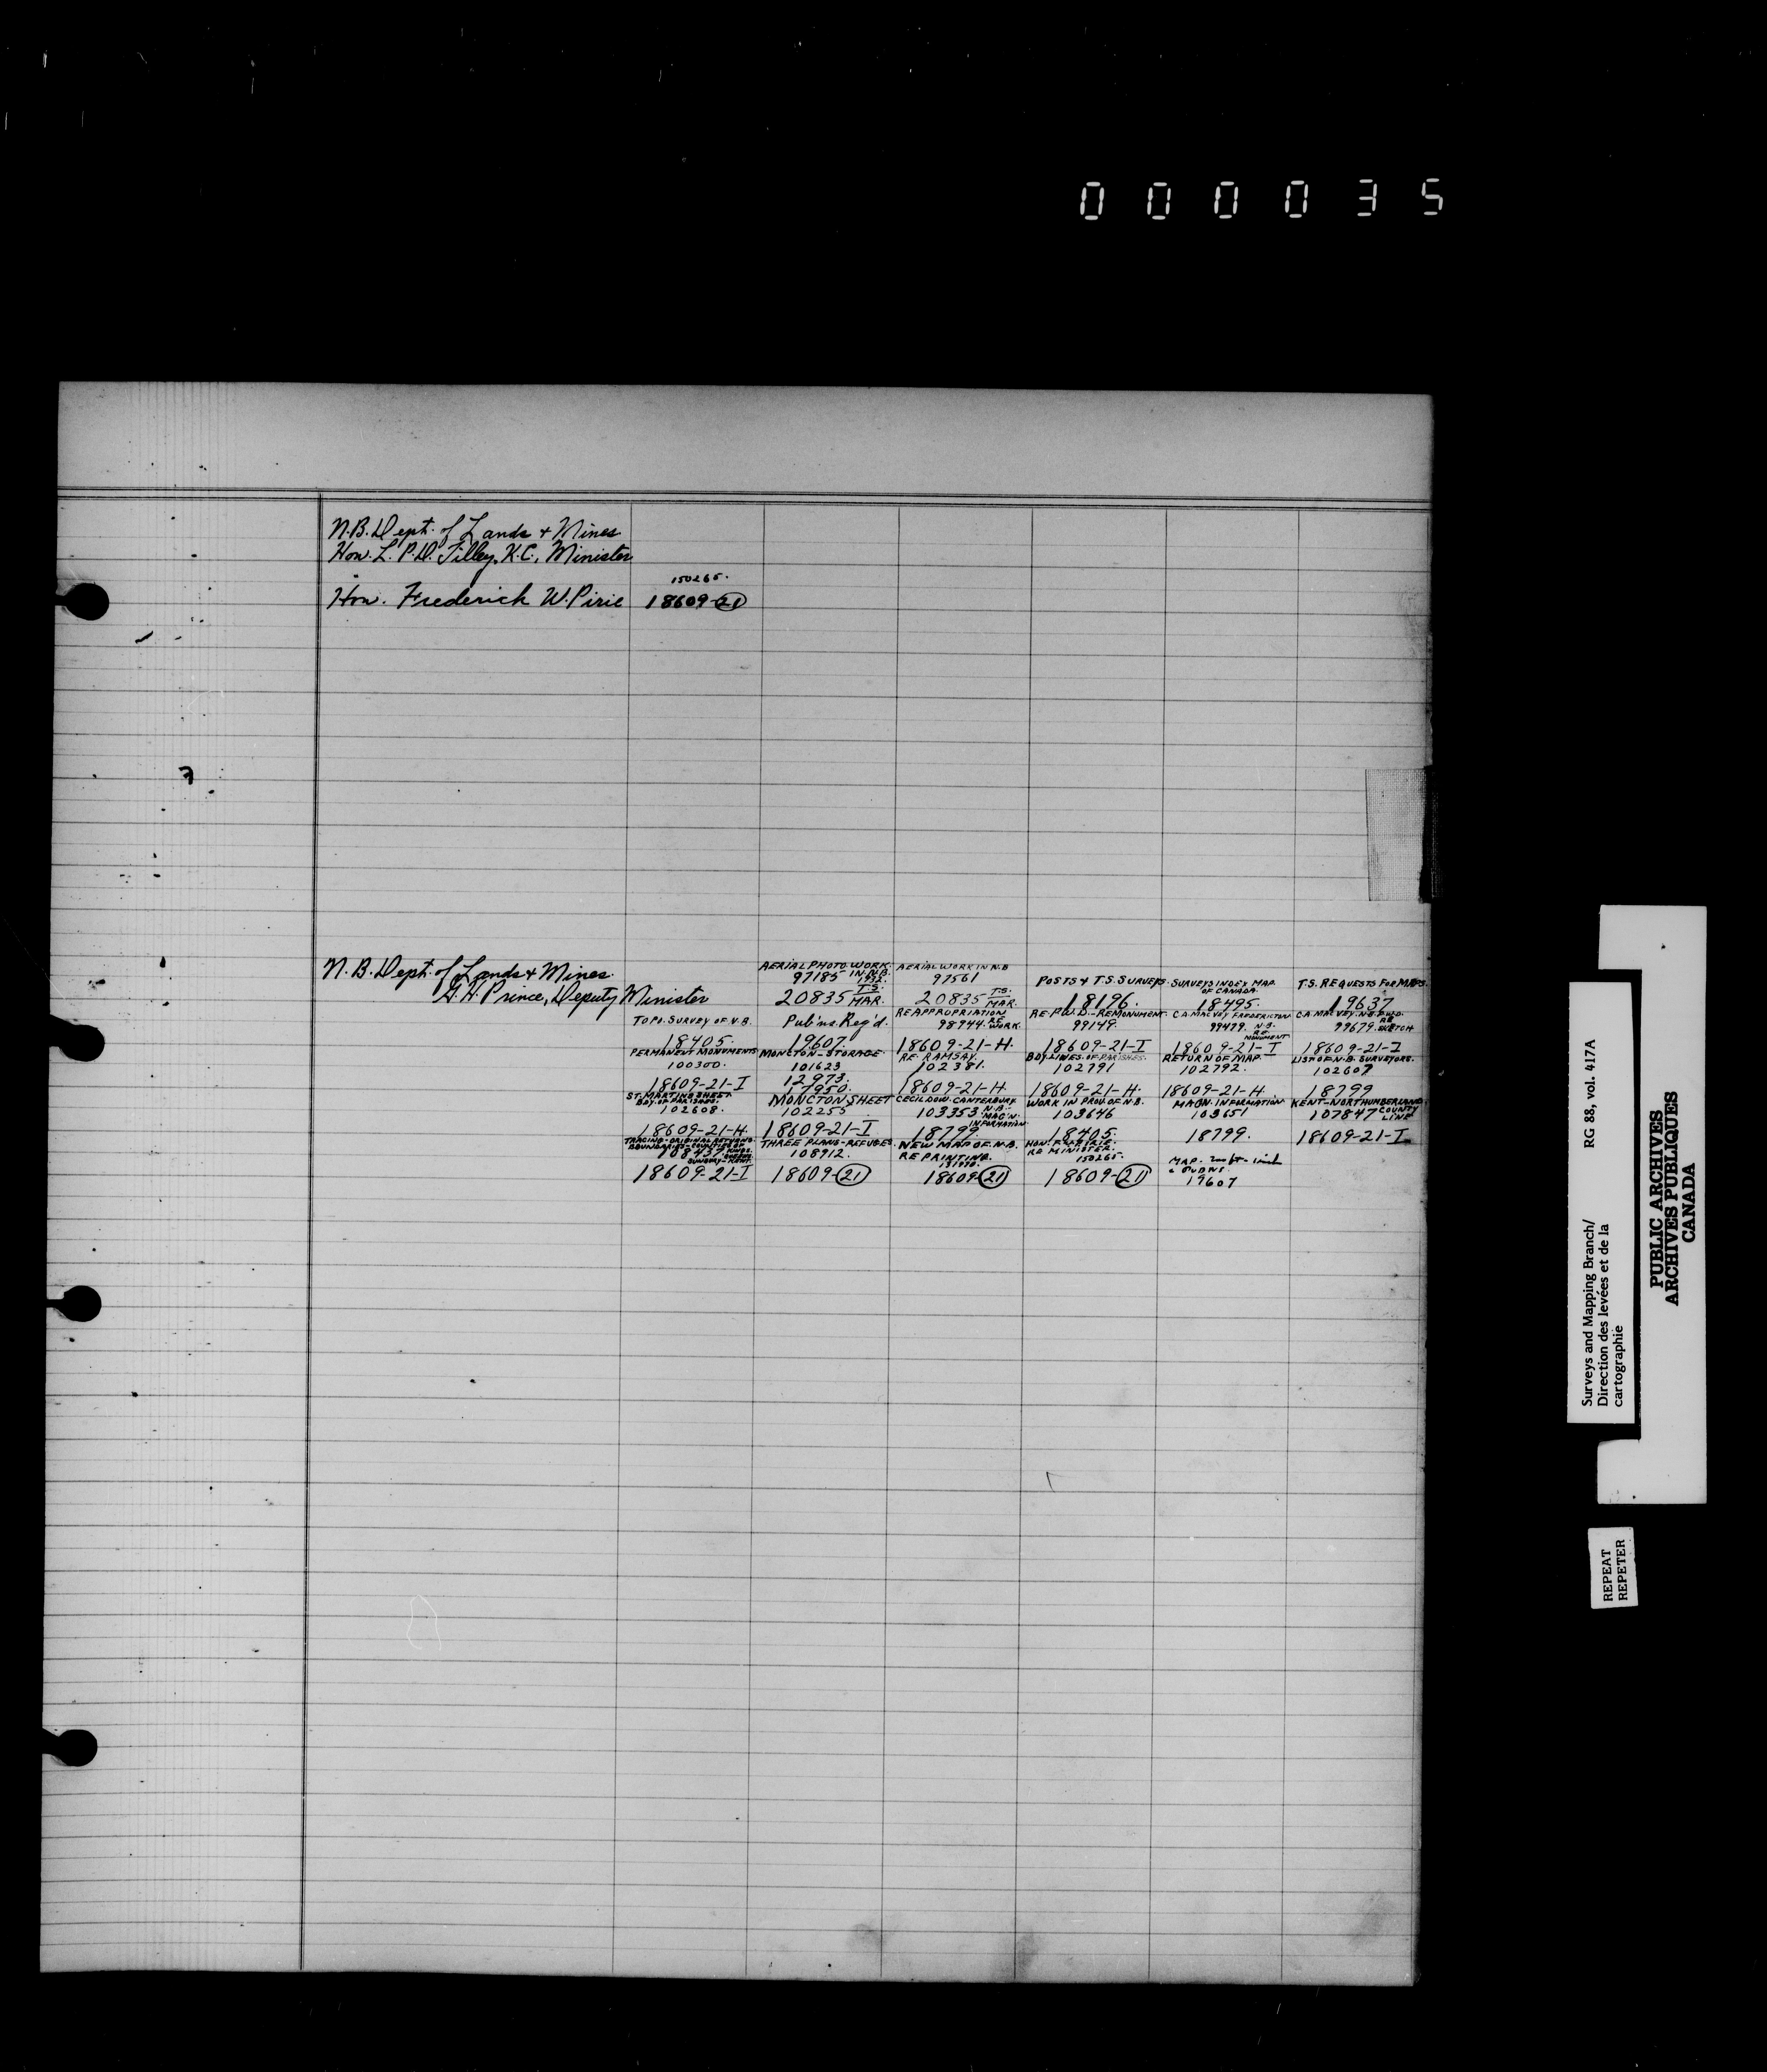 000035
N.B. Dept. of Lands & Mines
Hon. L. P. D. Tilley, K.C., Minister
150265.
Hon. Frederick W. Pirie 18609-21
N.B. Dept. of Lands & Mines.
G. H. Prince, Deputy Minister
AERIAL PHOTO. WORK. IN N.B. 1932.
97185
20835 T.S. MAR.
AERIAL WORK IN N.B
97561
20835 T.S. MAR.
POSTS & T.S. SURVEYS.
18196.
SURVEYS INDEX MAP. OF CANADA.
18495.
T.S. REQUESTS FOR MAPS.
19637
TOPO. SURVEY OF N.B.
18405.
Pub'ns. Reg'd.
19607.
RE APPROPRIATION
98944. RE WORK.
18609-21-H.
RE-P.W.D.-REMONUMENT.
99149.
18609-21-I
C.A. MACVEY FREDERICTON
99479. N.B. RE MONUMENT
18609-21-I
C.A. MACVEY. N.B. P.W.D.
99679. RE SKETCH
18609-21-I
PERMANENT MONUMENTS
100300.
18609-21-I
MONCTON-STORAGE.
101623
12973.
17950.
RE. RAMSAY.
102381.
18609-21-H.
BDY. LINES. OF PARISHES.
102791
18609-21-H.
RETURN OF MAP.
102792.
18609-21-H.
LIST OF N.B. SURVEYORS.
102607
18799
ST. MARTINS SHEET
BDY. OF PARISHES.
102608.
18609-21-H.
MONCTON SHEET
102255
18609-21-I
CECIL DOW. CANTERBURY.
103353 N.B. MAG'N. INFORMATION
18799.
WORK IN PROV. OF N.B.
103646
18405.
MAGN. INFORMATION
103651
18799.
KENT-NORTHUMBERLAND.
107847 COUNTY LINE
18609-21-I
TRACING-ORIGINAL RETURNS
BOUNDARIES-COUNTIES OF
108437 KINGS. QUEENS
SUNBURY-KENT.
18609-21-I
THREE PLANS-REFUGES.
108912.
18609-21
NEW MAP OF. N.B.
REPRINTING.
18609-21
HON. F. W. PIRIE.
RE MINISTER.
150265.
18609-21
MAP. - inch
19607
Surveys and Mapping Branch/ RG 88, vol. 417A
Direction des levées et de la
cartographie
PUBLIC ARCHIVES
ARCHIVES PUBLIQUES
CANADA
REPEAT
REPETER